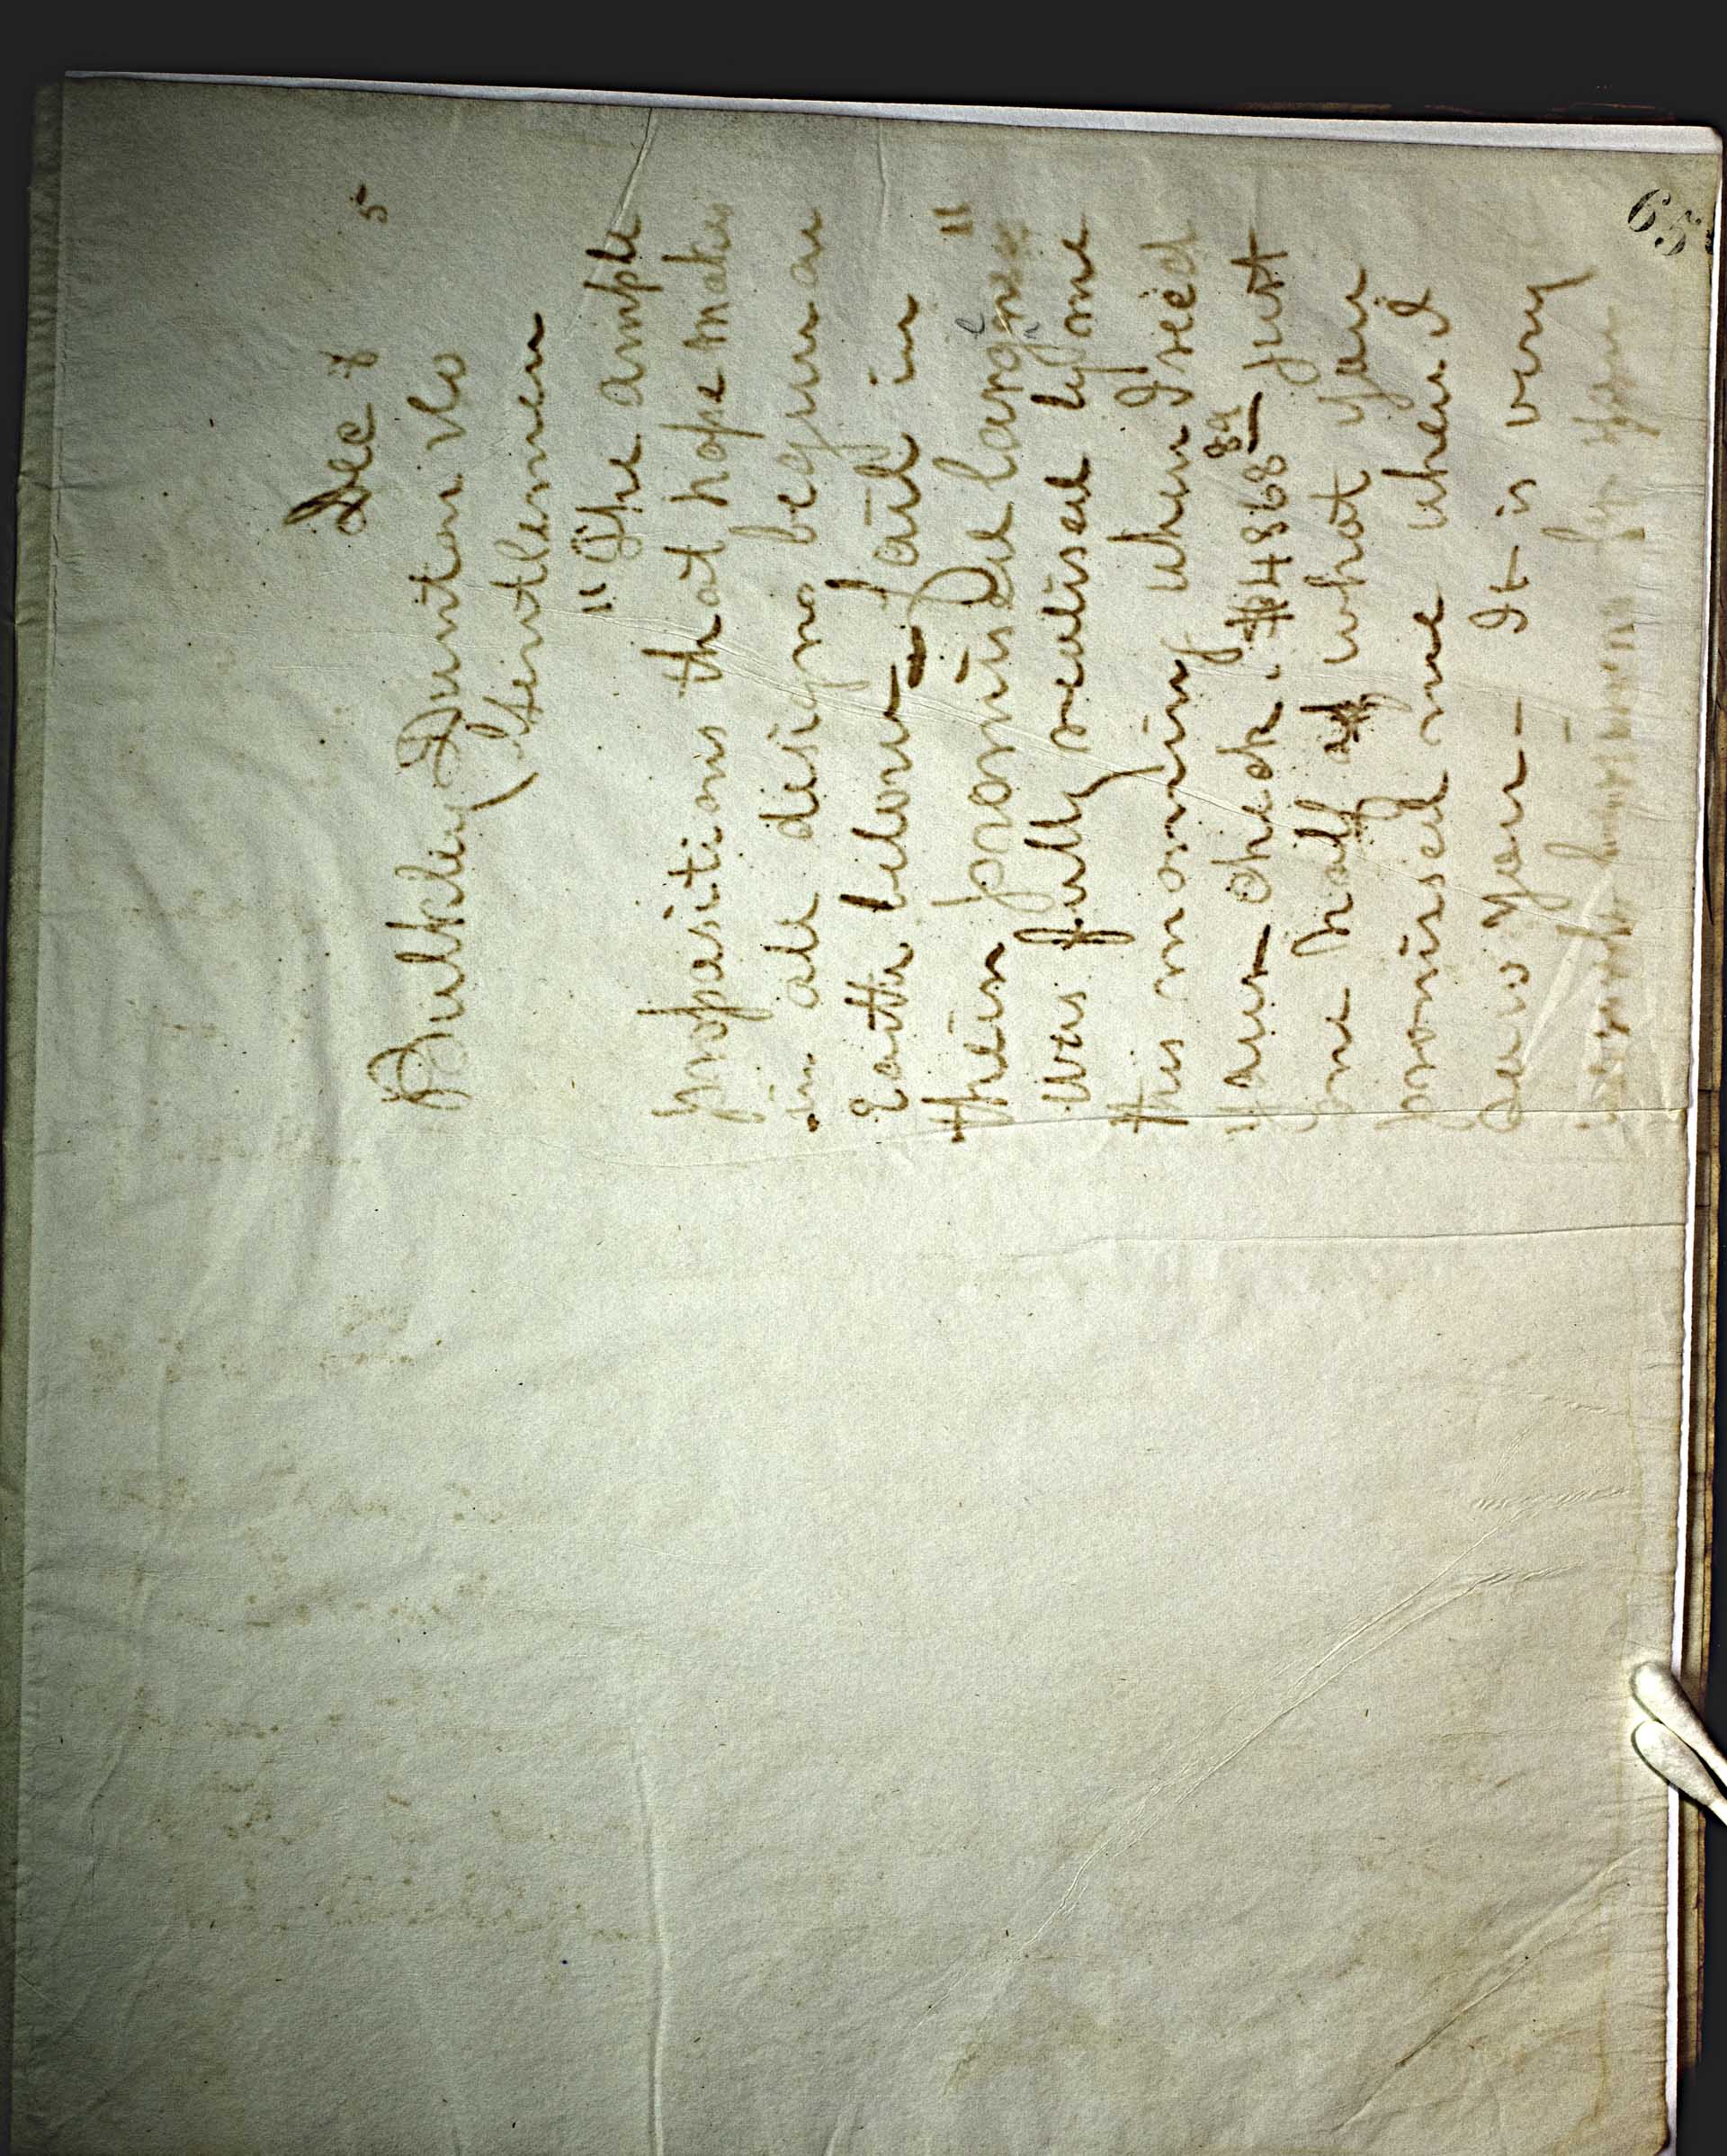 65
Dec 8 5
Bulkley Dunton & Co
Gentlemen
"The ample
propositions that hope makes
in all designs begun on
Earth below - fail in
their promised largness"
Was fully realised by me
this morning when I recd
your check. $4868 89 just
one half of what you
promised me when I
saw you - It is very